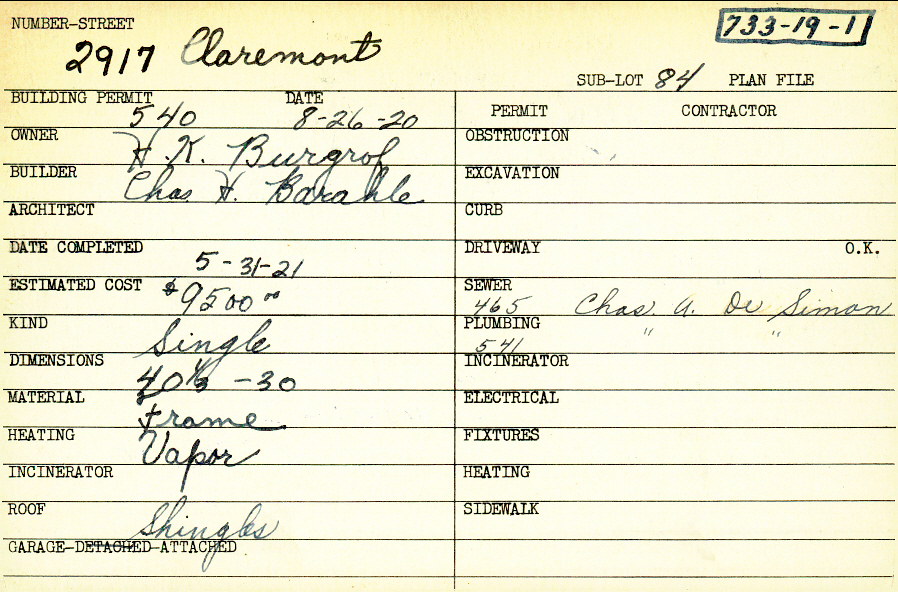 NUMBER-STREET
733-19-1
2917 Claremont
SUB-LOT 84 PLAN FILE
BUILDING PERMIT DATE
540 8-26-20
PERMIT CONTRACTOR
OWNER H. K. Burgrof
OBSTRUCTION
BUILDER Chas. H. Barahle
EXCAVATION
ARCHITECT
CURB
DATE COMPLETED 5-31-21
DRIVEWAY O.K.
ESTIMATED COST $9500 00
SEWER
465 Chas. A. De Simon
KIND Single
PLUMBING " "
541
DIMENSIONS 40 1/3 - 30
INCINERATOR
MATERIAL frame
ELECTRICAL
HEATING Vapor
FIXTURES
INCINERATOR
HEATING
ROOF Shingles
SIDEWALK
GARAGE-DETACHED-ATTACHED